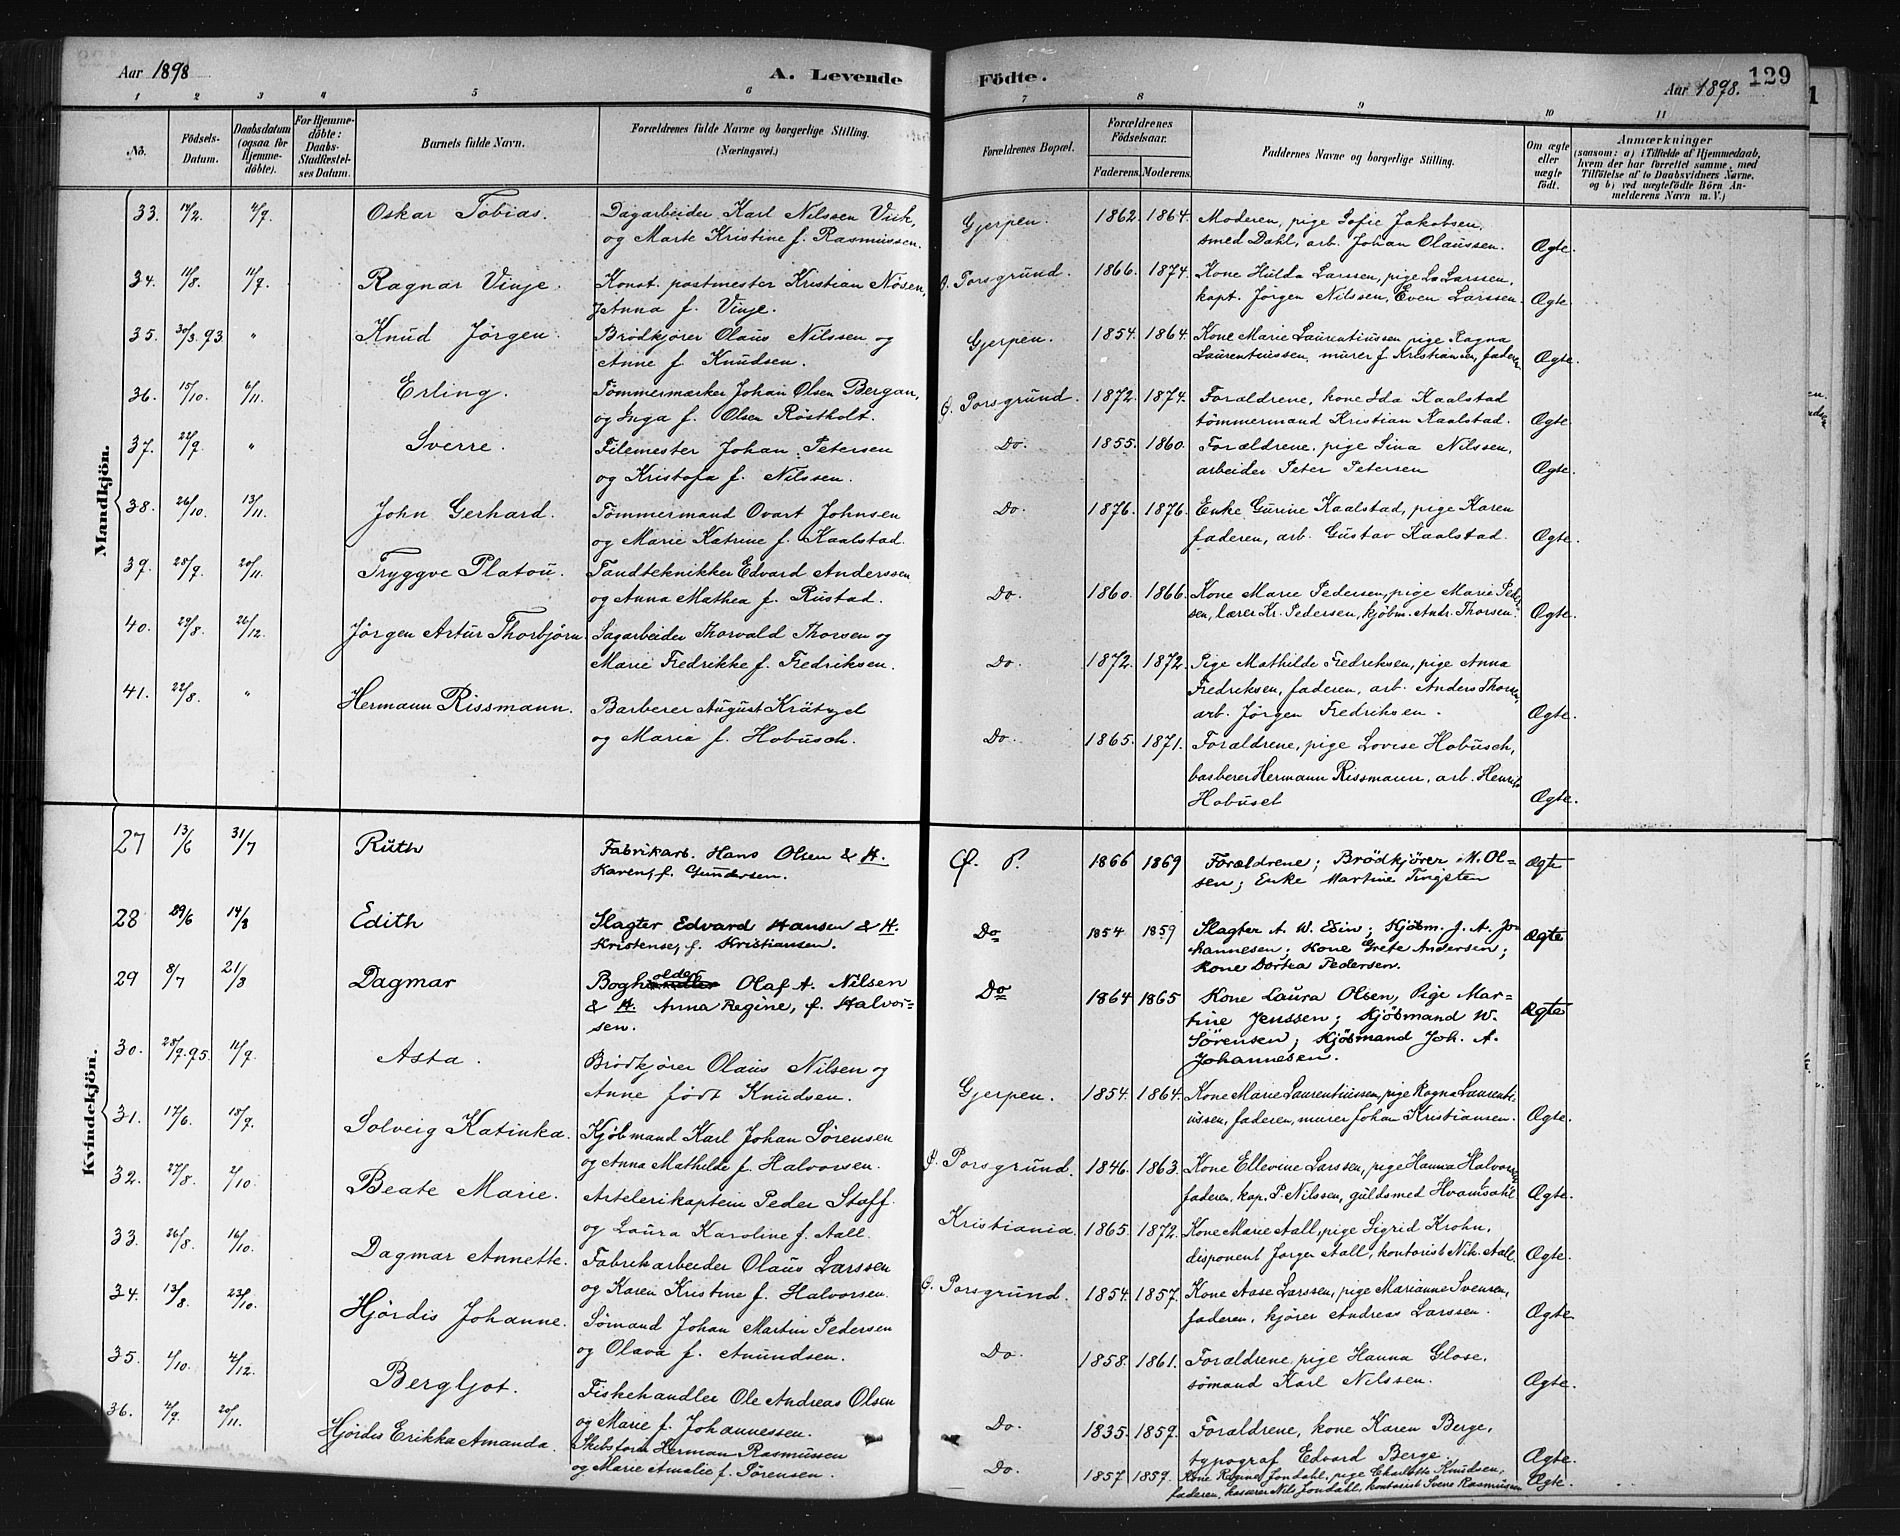 Aar 1898
A. Levende
Födte.
Aar 1898.
129
1 2 3 4 5 6 7 8 9 10 11
No.
Födsels-Datum.
Daabsdatum (ogsaa for Hjemme-döbte).
For Hjemme-döbte: Daabs-Stadfæstel-ses Datum.
Barnets fulde Navn.
Forældrenes fulde Navne og borgerlige Stilling.
(Næringsvei.)
Forældrenes Bopæl.
Forældrenes Födselsaar.
Faderens. Moderens.
Faddernes Navne og borgerlige Stilling.
Om ægte eller uægte födt.
Anmærkninger
(saasom: a) i Tilfælde af Hjemmedaab,
hvem der har forrettet samme, med
Tilföielse af to Daabsvidners Navne,
og b) ved uægtefödte Börn An-
melderens Navn m. V.)
Mandkjön.
33. 14/2. 4/9. Oskar Tobias. Dagarbeider Karl Nilssen Vish,
og Marte Kristine f. Rasmussen. Gjerpen. 1862. 1864. Moderen, pige Sofie Jakobsen,
smed Dahl, arb. Johan Olaussen. Ægte.
34. 11/8. 11/9. Ragnar Vinje. Konst. postmester Kristian Nösen,
Anna f. Vinje. Ø. Porsgrund. 1866. 1874. Kone Hulda Larssen, pige La Larssen,
kapt. Jörgen Nilssen, Even Larssen. Ægte.
35. 30/3.93. " Knud Jörgen. Brödkjører Olaus Nilssen og
Anne f. Knudsen. Gjerpen. 1854. 1864. Kone Marie Laurentiussen pige Ragna
Laurentiussen, murer J. Kristiansen, faderen Ægte.
36. 15/10. 6/11. Erling. Tömmermærker Johan Olsen Bergan,
og Inga f. Olsen Röstholt. Ø. Porsgrund. 1872. 1874. Forældrene, kone Ida Kaalstad
tömmermand Kristian Kaalstad. Ægte.
37. 22/9. " Sverre. Filemester Johan Petersen
og Kristofa f. Nilssen. Do. 1855. 1860. Forældrene, pige Sina Nilssen,
arbeider Peter Petersen Ægte.
38. 26/10. 13/11. John Gerhard. Tömmermand Ovart Johnsen
og Marie Katrine f. Kaalstad. Do. 1876. 1876. Enke Gurine Kaalstad, pige Karen
faderen, arb. Gustav Kaalstad. Ægte.
39. 28/9. 20/11. Tryggve Platou. Tandtekniker Edvard Anderssen
og Anna Mathea f. Rustad. Do. 1860. 1866. Kone Marie Pedersen, pige Marie Peder-
sen, lærer Kr. Pedersen, kjöbm. Andr. Thorsen. Ægte.
40. 29/8. 26/12. Jörgen Artur Thorbjörn. Sagarbeider Thorvald Thorsen og
Marie Fredrikke f. Fredriksen. Do. 1872. 1872. Pige Mathilde Fredriksen, pige Anna
Fredriksen, faderen, arb. Anders Thorsen,
arb. Jörgen Fredriksen. Ægte.
41. 22/8. " Hermann Rissmann. Barberer August Krätzel
og Maria f. Hobusch. Do. 1865. 1871. Forældrene, pige Lovise Hobusch,
barberer Hermann Rissmann, arb. Henrik
Hobuset Ægte.
Kvindekjön.
27 13/6 31/7 Ruth Fabrikarb. Hans Olsen & H.
Karen, f. Gundersen. Ø. P. 1866 1869 Forældrene; Brödkjører N. Ol-
sen; Enke Martine Tingsten Ægte
28 29/6 14/8 Edith Slagter Edvard Hansen & H.
Kristense, f. Kristiansen. Do 1854 1859 Slagter A. W. Edin; Kjöbm. J. A. Jo-
hannesen; Kone Grete Andersen;
Kone Dortea Pedersen. Ægte
29 8/7 21/8 Dagmar Bogholder Olaf A. Nilsen
& H. Anna Regine, f. Halvor-
sen. Do 1864 1865 Kone Laura Olsen, Pige Mar-
tine Jenssen; Kjöbmand W.
Sörensen; Kjöbmand Joh. A.
Johannesen. Ægte
30. 28/9.95. 11/9. Asta. Brödkjører Olaus Nilsen og
Anne födt Knudsen. Gjerpen. 1854. 1864. Kone Marie Laurentiussen, pige Ragna Laurenti-
ussen, faderen, murer Johan Kristiansen. Ægte.
31. 17/6. 18/9. Solveig Katinka. Kjöbmand Karl Johan Sörensen
og Anna Mathilde f. Halvorsen. Ø. Porsgrund. 1846. 1863. Kone Ellevine Larssen, pige Hanna Halvorsen
faderen, kap. P. Nilssen, guldsmed Hvamsahl Ægte.
32. 27/8. 2/10. Beate Marie. Artelerikaptein Peder Staff
og Laura Karoline f. Aall. Kristiania. 1865. 1872. Kone Marie Aall, pige Sigrid Krohn,
disponent Jorgen Aall, kontorist Nik. Aall. Ægte.
33. 26/8. 16/10. Dagmar Annette. Fabrikarbeider Olaus Larssen
og Karen Kristine f. Halvorsen. Ø. Porsgrund. 1854. 1857. Kone Aase Larssen, pige Marianne Svensen,
faderen, kjører Andreas Larssen. Ægte.
34. 13/8. 23/10. Hjørdis Johanne. Sömand Johan Martin Pedersen
og Olava f. Amundsen. Do. 1858. 1861. Forældrene, pige Hanna Glose,
sömand Karl Nilssen. Ægte.
35. 4/10. 4/12. Bergljot. Fiskehandler Ole Andreas Olsen
og Marie f. Johannessen. Do. 1835. 1859. Forældrene, kone Karen Berge,
typograf Edvard Berge. Ægte.
36. 4/9. 20/11. Hjördis Erikka Amanda. Skibsförer Herman Rasmussen
og Marie Amalie f. Sörensen. Do. 1857. 1859. Kone Regine Jondahl, pige Charlotte Knudsen,
faderen, kaserer Nils Jondahl, kontorist Svene Rasmussen Ægte.